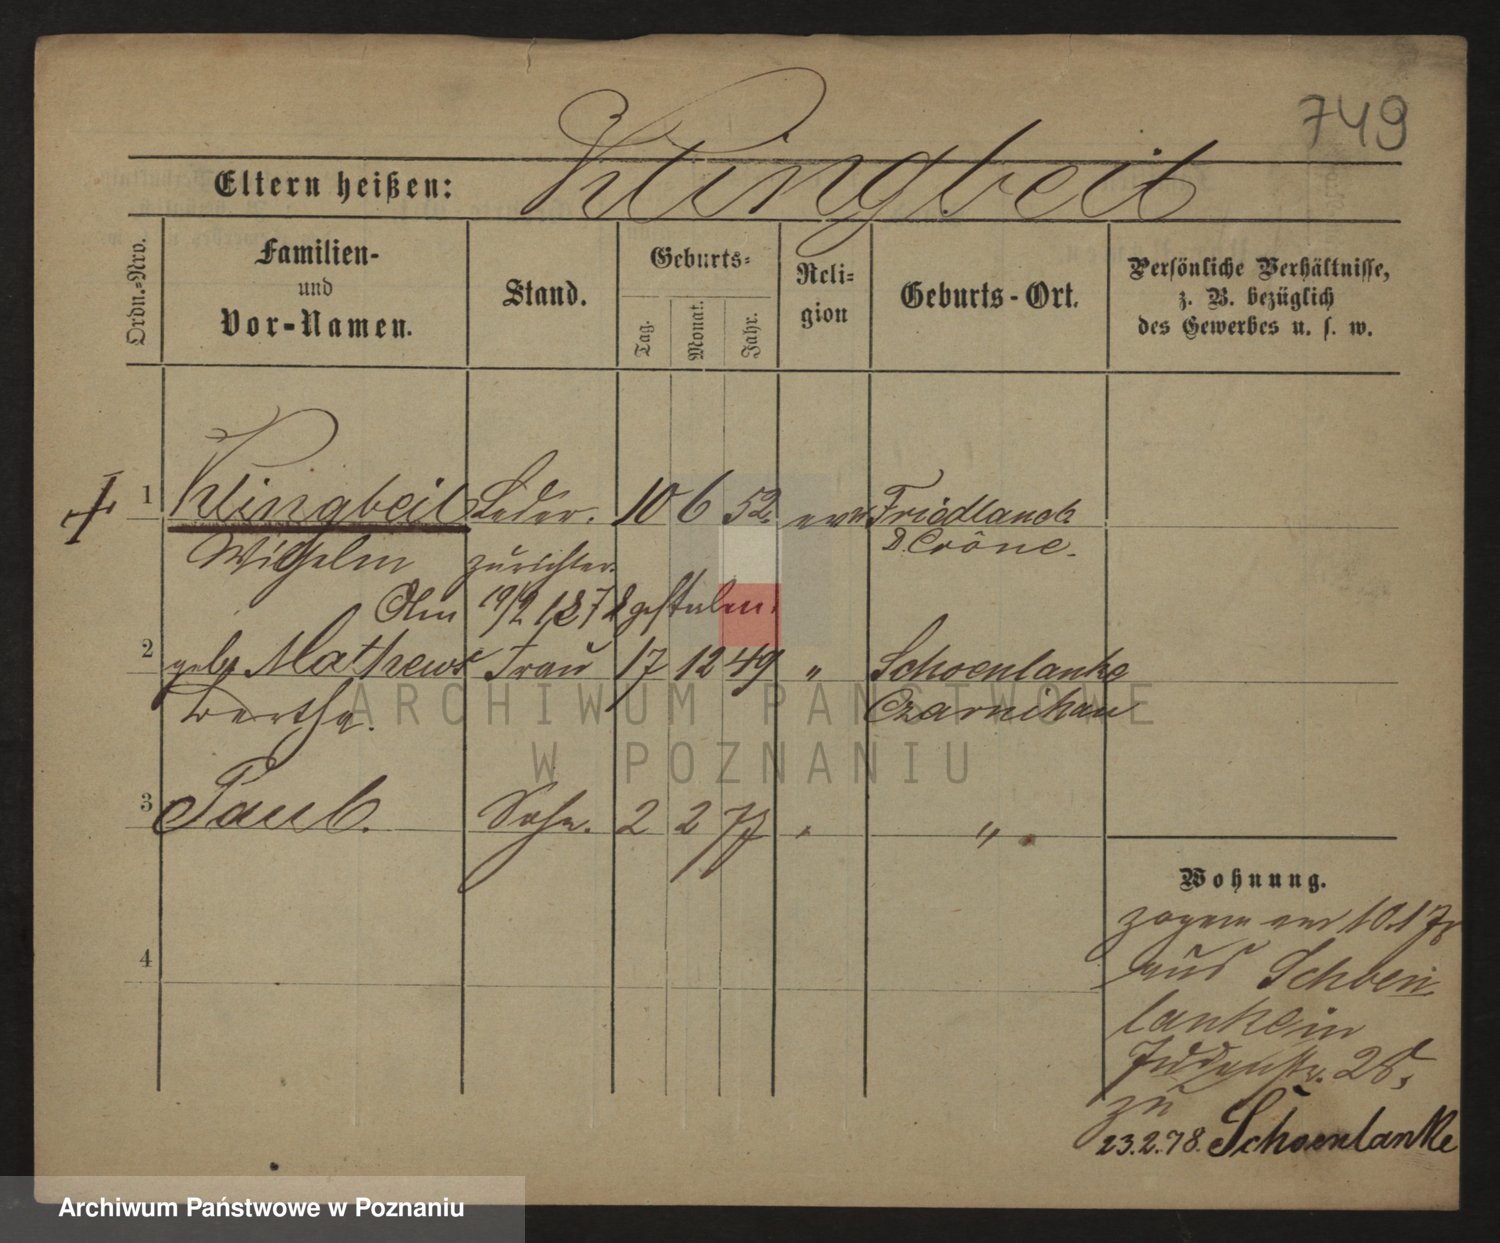 749
Eltern heißen: Klingbeil
Ordn.-Nro.
Familien-
und
Vor-Namen.
Stand.
Geburts-
Tag.
Monat.
Jahr.
Reli-
gion
Geburts-Ort.
Persönliche Verhältnisse,
z. B. bezüglich
des Gewerbes u. s. w.
1 Klingbeil Leder. 10 6 52. Friedland
Wilhelm zurichter. D. Crone.
19/2 1878 gestorben.
2 geb. Mathews Frau 17 12 49 " Schoenlanke
Bertha. Czarnikau
3 Paul. Sohn. 2 2 77 " "
4
Wohnung.
zogen am 10.1 78
aus Schoen
lanke in
Judenstr. 28,
zu
23.2.78. Schoenlanke
ARCHIWUM PAŃSTWOWE
W POZNANIU
Archiwum Państwowe w Poznaniu